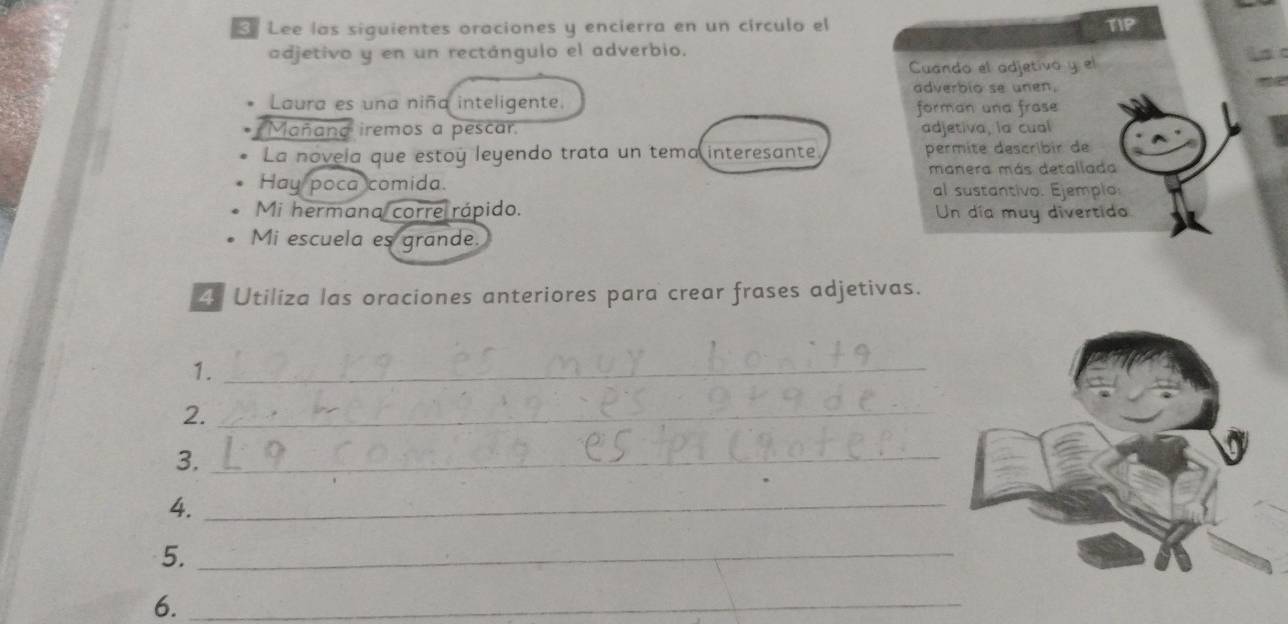 3 Lee las siguientes oraciones y encierra en un círculo el
adjetivo y en un rectángulo el adverbio.
• Laura es una niña inteligente.
• Mañana iremos a pescar.
• La novela que estoy leyendo trata un tema interesante.
• Hay poca comida.
• Mi hermana corre rápido.
• Mi escuela es grande.
TIP
Cuando el adjetivo y el
adverbio se unen,
forman una frase
adjetiva, la cual
permite describir de
manera más detallada
al sustantivo. Ejemplo:
Un día muy divertido.
4 Utiliza las oraciones anteriores para crear frases adjetivas.
1. es muy bonita
2. Mi hermana es grade.
3. La comida es
4.
5.
6.